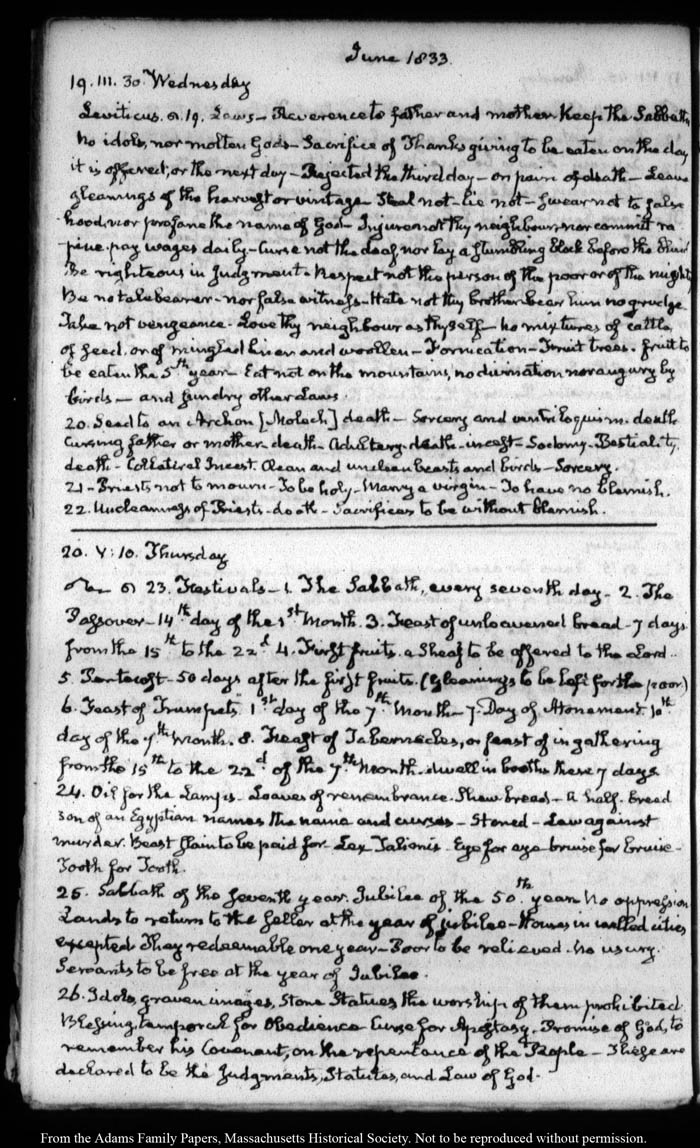 June 1833.
19. III. 30. Wednesday
Leviticus. 19. Laws – Reverence to father and mother Keep the Sabbath,
no idols, nor molten Gods – Sacrifice of Thanksgiving to be eaten on the day
it is offered, or the next day – Rejected the third day – on pain of death – Leave
gleanings of the harvest or vintage – Steal not – lie not – Swear not to false
hood, nor profane the name of God – Injure not thy neighbour nor commit ra
pine. pay wages daily – Curse not the deaf nor lay a stumbling block before the blind
Be righteous in Judgment – Respect not the person of the poor or of the mighty
Be no talebearer – nor false witness – Hate not thy brother – bear him no grudge.
Take not vengeance – Love thy neighbour as thyself – no mixtures of cattle,
of seed. or of mingled linen and woollen – Fornication – Fruit trees. fruit to
be eaten the 5th year – Eat not on the mountains, no divination nor augury by
birds – and sundry other Laws.
20. Seed to an Archon [Moloch] death – Sorcery and ventriloquism. death
Cursing father or mother – death – Adultery. death – incest – Sodomy – Bestiality,
death – Collateral Incest. Clean and unclean beasts and birds – Sorcery.
21 – Priests not to mourn – To be holy – Marry a virgin – To have no blemish.
22. Uncleanness of Priests – death – Sacrifices to be without blemish.
20. V: 10. Thursday
23. Festivals – 1. The Sabbath, every seventh day – 2. The
Passover – 14th day of the 1st Month. 3. Feast of unleavened bread – 7 days
from the 15th to the 22d 4. First fruits. a Sheaf to be offered to the Lord –
5. Pentecost – 50 days after the first fruits. (Gleanings to be left for the poor)
6. Feast of Trumpets 1st day of the 7th Month – 7. Day of Atonement. 10th
day of the 7th Month. 8. Feast of Tabernacles, or feast of in gathering
from the 15th to the 22d of the 7th Month. dwell in booths these 7 days
24. Oil for the Lamps. Loaves of remembrance. Shew bread – A half. breed
son of an Egyptian names the name and curses – Stoned – Law against
murder. Beast slain to be paid for – Lex Talionis. Eye for eye bruise for bruise –
Tooth for Tooth.
25. Sabbath of the seventh year. Jubilee of the 50th year. No oppression
Lands to return to the seller at the year of jubilee – Houses in walled cities
excepted They redeemable one year – Poor to be relieved – no usury.
Servants to be free at the year of Jubilee.
26. Idols, graven images, Stone Statues the worship of them prohibited
Blessing, temporal for Obedience Curse for Apostasy. Promise of God, to
remember his Covenant, on the repentance of the People – These are
declared to be the Judgments, Statutes, and Law of God –
From the Adams Family Papers, Massachusetts Historical Society. Not to be reproduced without permission.